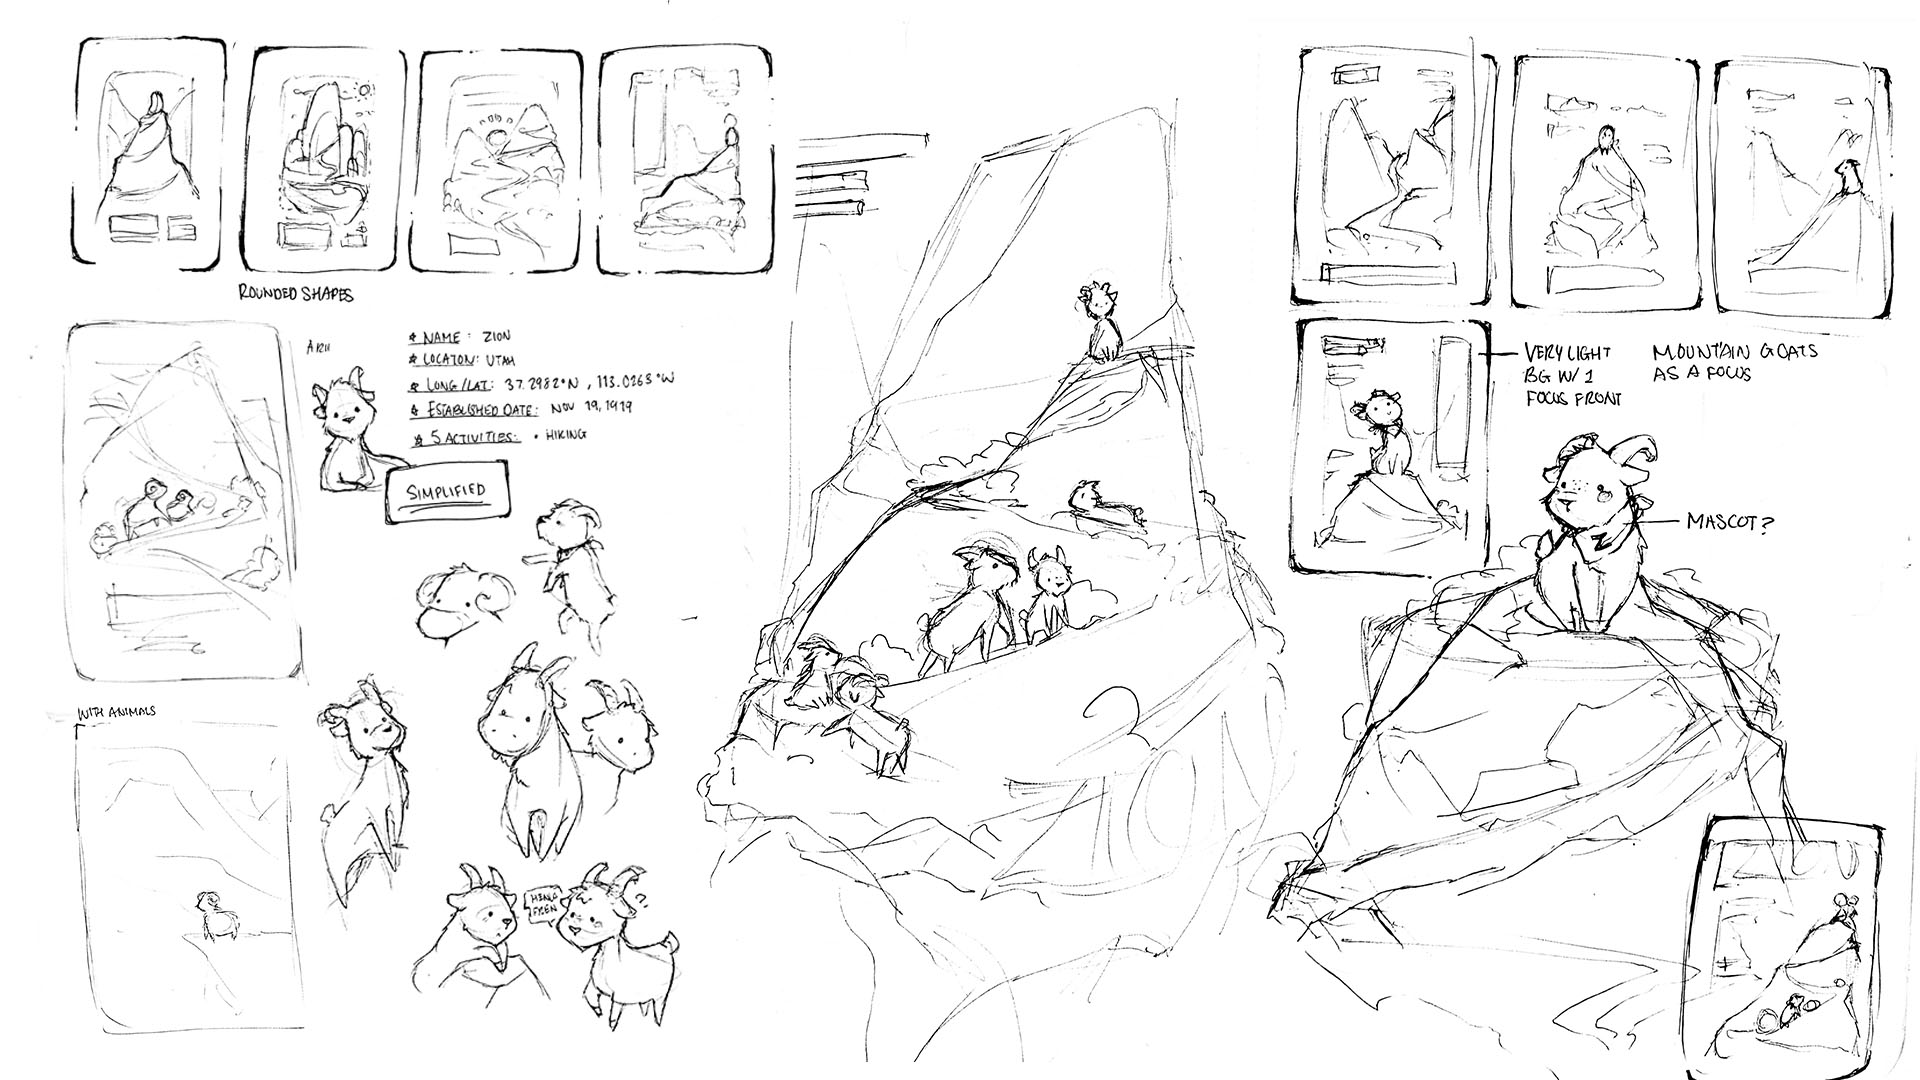 ROUNDED SHAPES
★ NAME : ZION
★ LOCATON: UTAH
★ LONG/LAT: 37.2982°N , 113.0263°W
★ ESTABLISHED DATE: NOV 19, 1919
★ 5 ACTIVITIES: • HIKING
SIMPLIFIED
WITH ANIMALS
ZION
VERY LIGHT
BG W/ 1
FOCUS FRONT
MOUNTAIN GOATS
AS A FOCUS
Z
MASCOT?
?